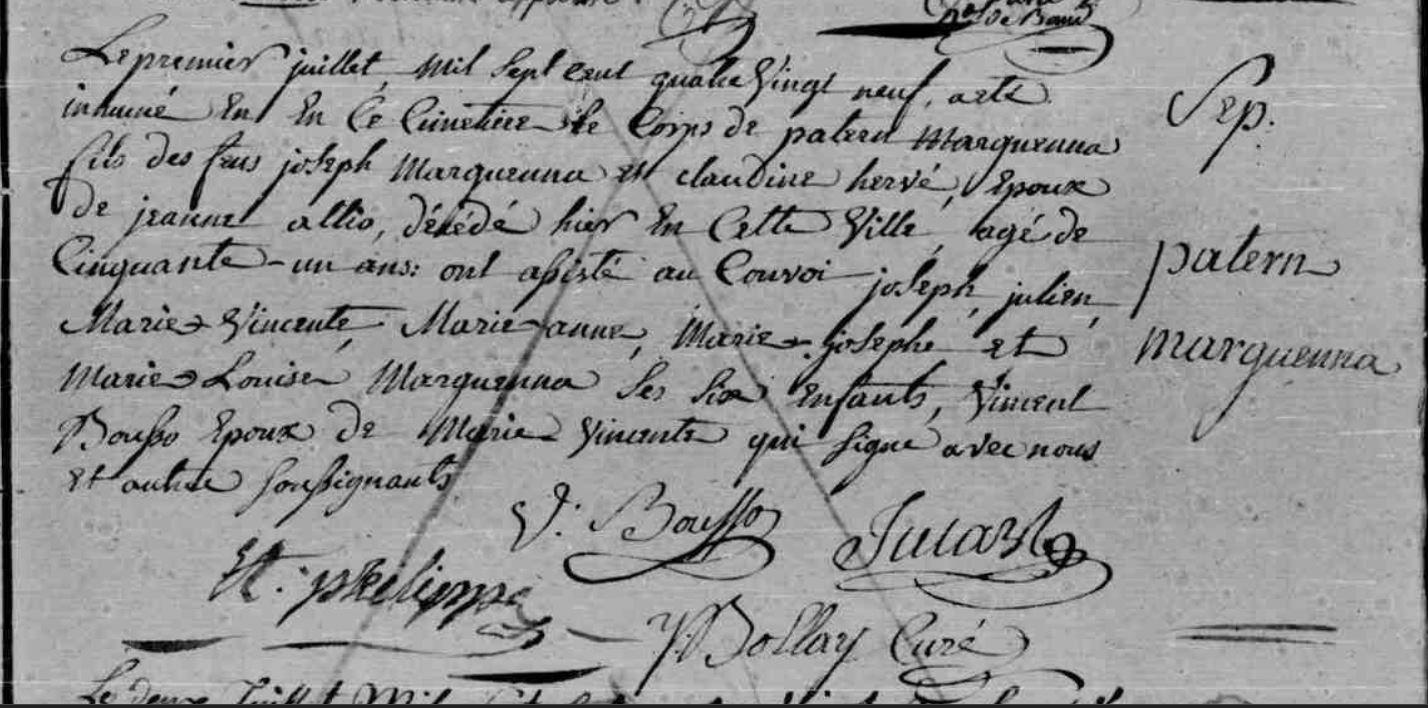 Le premier juillet, mil sept cent quatre vingt neuf, a été
inhumé En En Ce Cimetiere le Corps de patern Marguenna
fils des feus joseph Marguenna et claudine hervé, Epoux
de jeanne allio, décédé hier En Cette Ville, agé de
Cinquante-un ans: ont assisté au Convoi joseph, julien,
Marie Vincente, Marie anne, Marie josephe et
Marie Louise Marguenna ses six Enfants, Vincent
Bousso Epoux de Marie Vincente qui signe avec nous
Et autre soussignants
Sep.
patern
marguenna
V: Bousso
Et. philippe
Bollay Curé
Le deux Juillet Mil